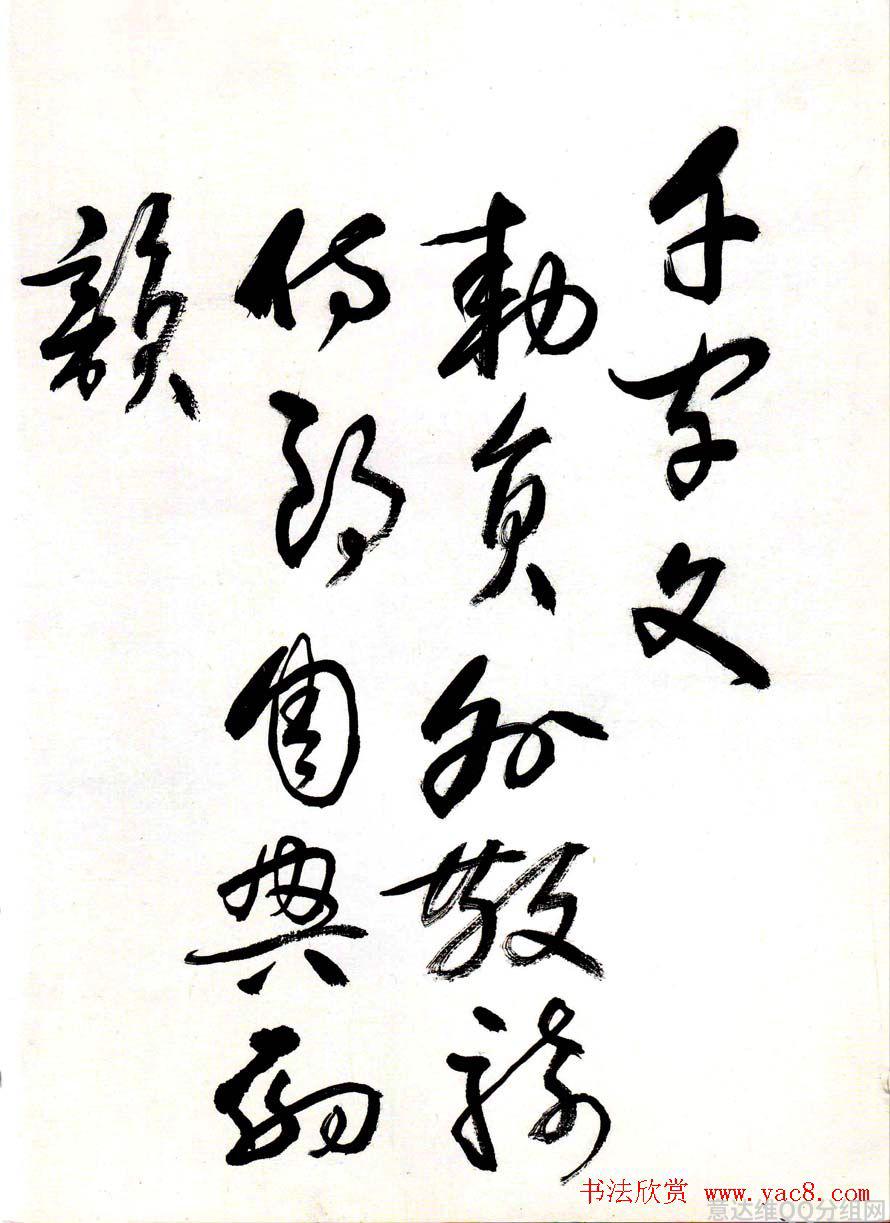 千字文
敕员外散骑
侍郎周兴嗣
韵
书法欣赏 www.yac8.com
意达维QQ分组网